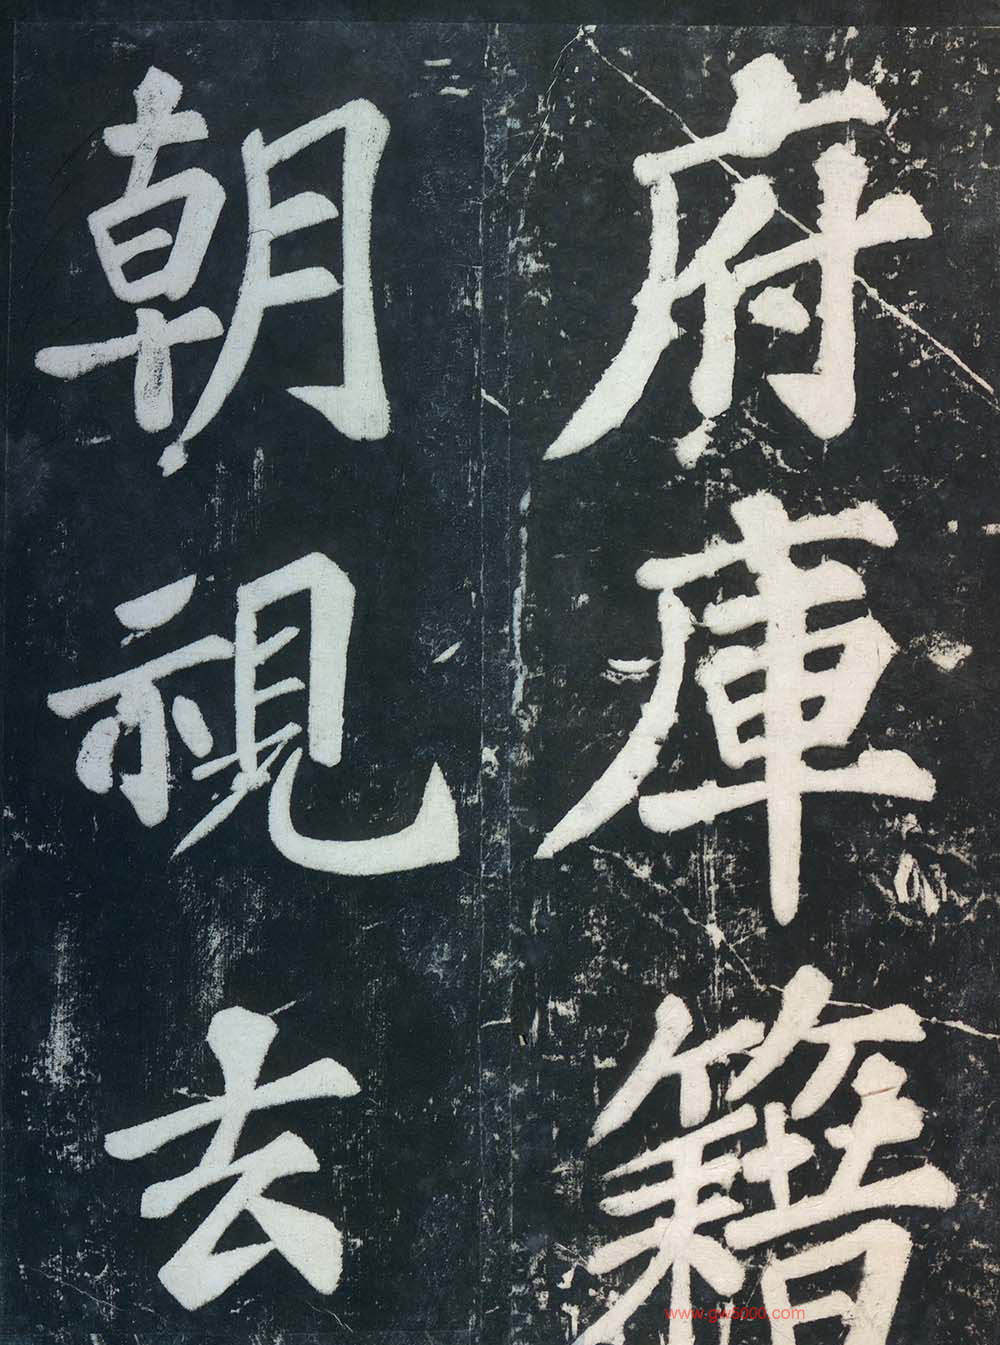 府庫籍
朝視去
www.gw5000.com